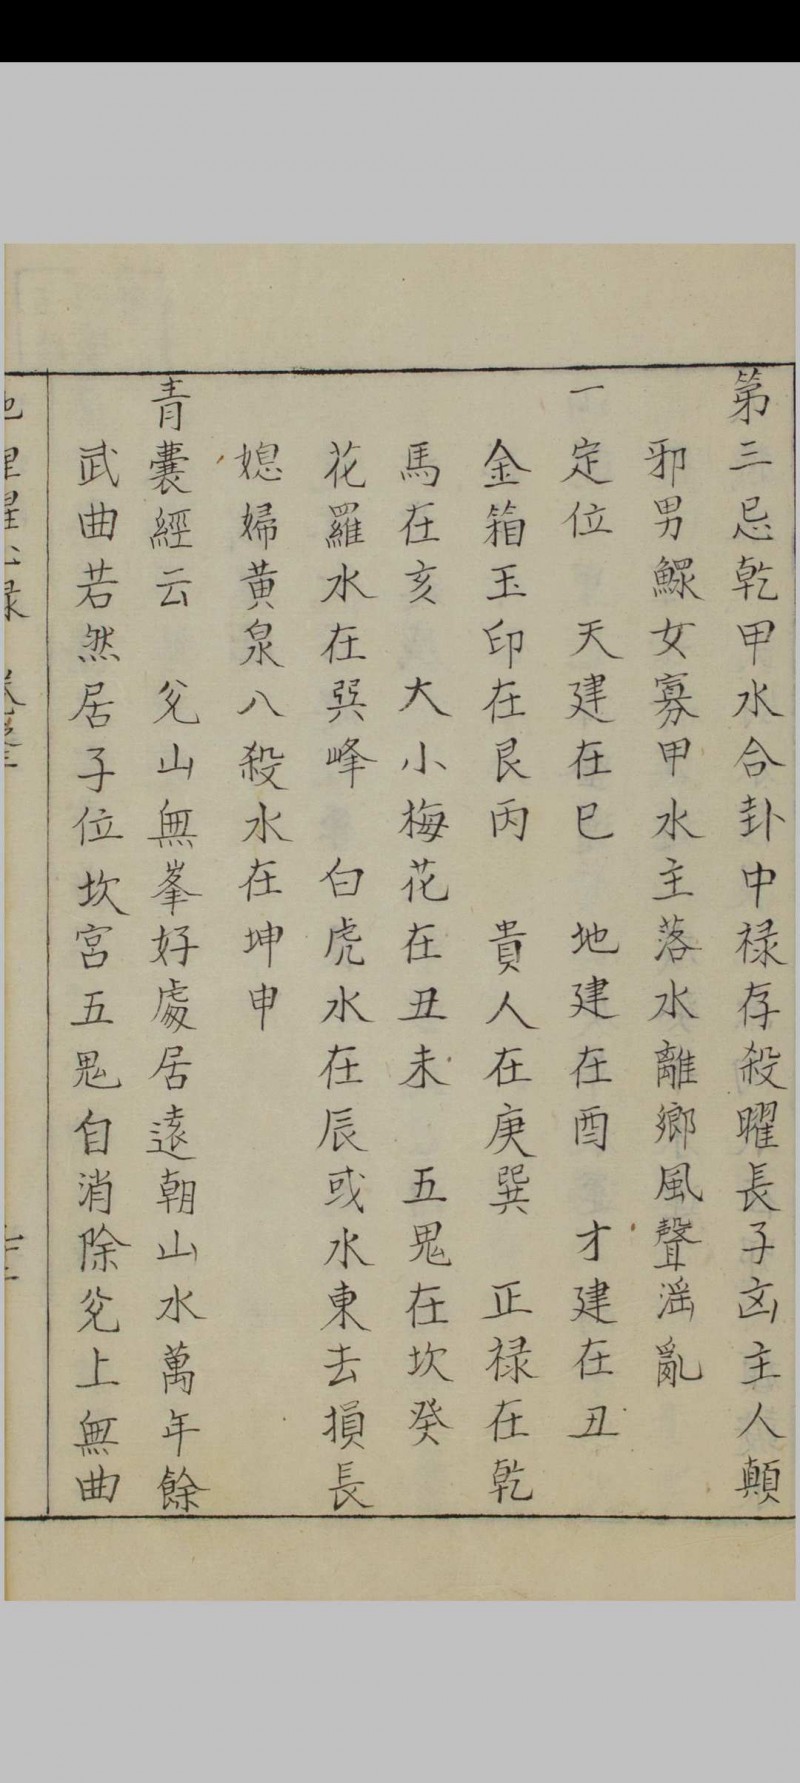 第三忌乾甲水合卦中禄存殺曜長子凶主人顛
邪男鰥女寡甲水主落水離鄉風聲滛亂
一定位　天建在巳　地建在酉　才建在丑
金箱玉印在艮丙　貴人在庚巽　正禄在乾
馬在亥　大小梅花在丑未　五鬼在坎癸
花羅水在巽峰　白虎水在辰或水東去損長
媳婦黄泉八殺水在坤申
青囊經云　兊山無峯好處居遠朝山水萬年餘
武曲若然居子位坎宮五鬼自消除兊上無曲